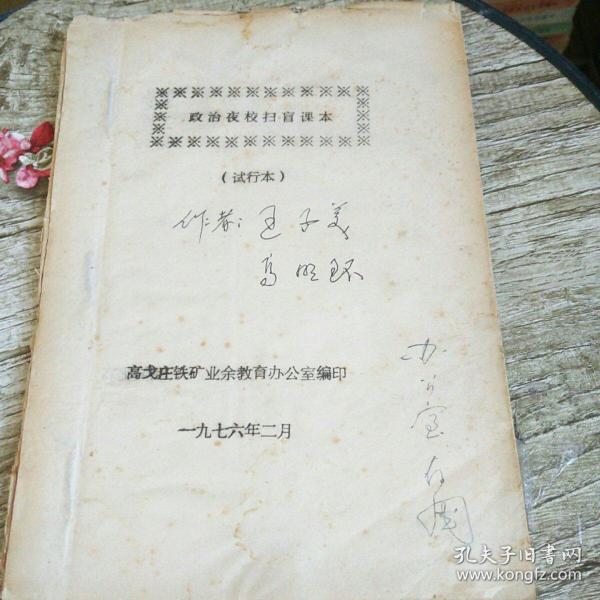 政治夜校扫盲课本
（试行本）
作者：王子美
高明环
高戈庄铁矿业余教育办公室编印
一九七六年二月
办公室
孔夫子旧书网
www.kongfz.com